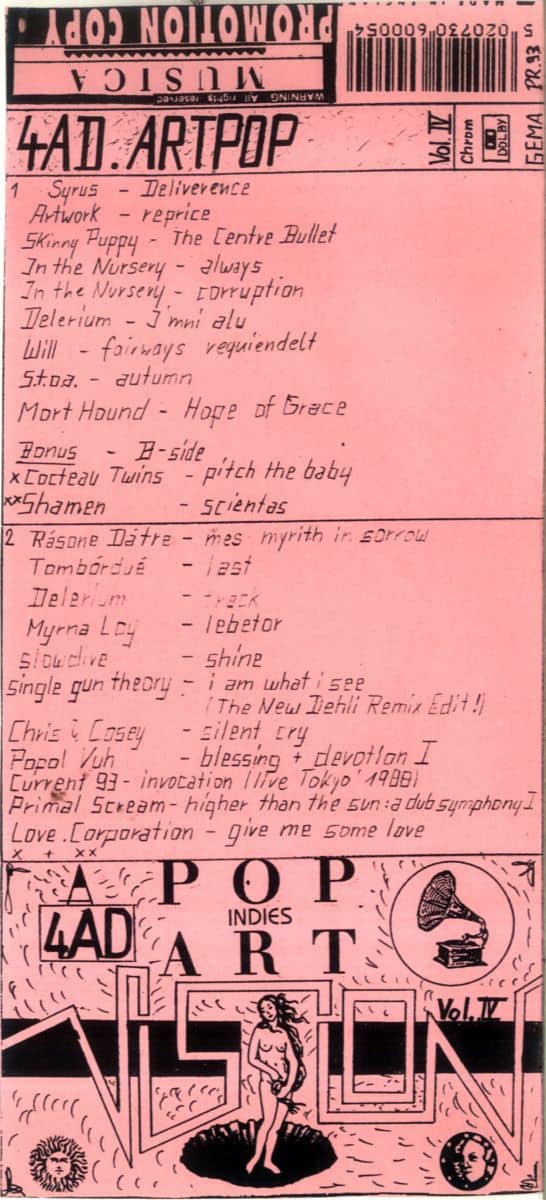 PROMOTION COPY.
MUSICA
WARNING All rights reserved
5 020730 600054
PR.93
4AD.ARTPOP
Vol.IV
Chrom
DOLBY
GEMA
1 Syrus - Deliverence
Artwork - reprice
Skinny Puppy - The Centre Bullet
In the Nursery - always
In the Nursery - corruption
Delerium - I'mni alu
Will - fairways requiendelt
S.t.o.a. - autumn
Mort Hound - Hope of Grace
Bonus - B-side
x Cocteau Twins - pitch the baby
xx Shamen - scientas
2 Rásone Dátre - mes myrith in sorrow
Tombórdué - last
Delerium - track
Myrna Loy - lebetor
slowdive - shine
single gun theory - i am what i see
(The New Dehli Remix Edit!)
Chris & Cosey - silent cry
Popol Vuh - blessing + devotion I
Current 93 - invocation (live Tokyo' 1988)
Primal Scream - higher than the sun: a dub symphony I
Love.Corporation - give me some love
x + xx
A POP
4AD INDIES
ART
Vol.IV
VISION